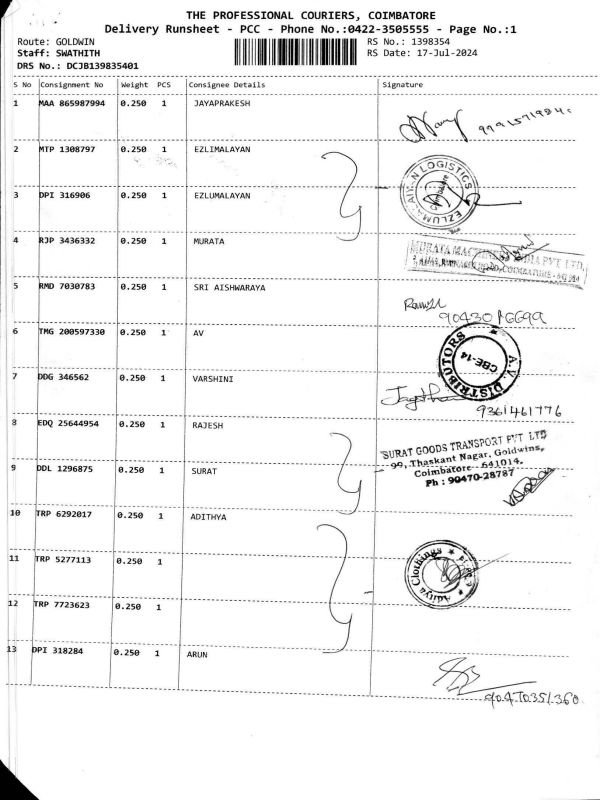 THE PROFESSIONAL COURIERS, COIMBATORE
Delivery Runsheet - PCC - Phone No.:0422-3505555 - Page No.:1
Route: GOLDWIN RS No.: 1398354
Staff: SWATHITH RS Date: 17-Jul-2024
DRS No.: DCJB139835401
S No Consignment No Weight PCS Consignee Details Signature
1 MAA 865987994 0.250 1 JAYAPRAKESH
2 MTP 1308797 0.250 1 EZLIMALAYAN
3 DPI 316906 0.250 1 EZLUMALAYAN
LOGISTICS
4 RJP 3436332 0.250 1 MURATA
MURATA MACHINERY INDIA PVT LTD,
5 RMD 7030783 0.250 1 SRI AISHWARAYA
6 TMG 200597330 0.250 1 AV
A.V. DISTRIBUTORS
CBE-14
7 DDG 346562 0.250 1 VARSHINI
9361461776
8 EDQ 25644954 0.250 1 RAJESH
9 DDL 1296875 0.250 1 SURAT
SURAT GOODS TRANSPORT PVT LTD
99, Thaskant Nagar, Goldwins,
Coimbatore - 641014.
Ph : 90470-28787
10 TRP 6292017 0.250 1 ADITHYA
11 TRP 5277113 0.250 1
Aditya Clothings
12 TRP 7723623 0.250 1
13 DPI 318284 0.250 1 ARUN
90470351360